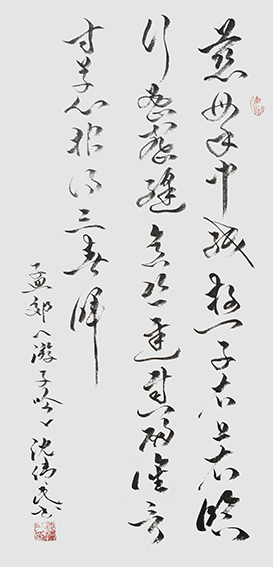 慈母手中线游子身上衣临
行密密缝意恐迟迟归谁言
寸草心报得三春晖
孟郊〈游子吟〉沈伟民书